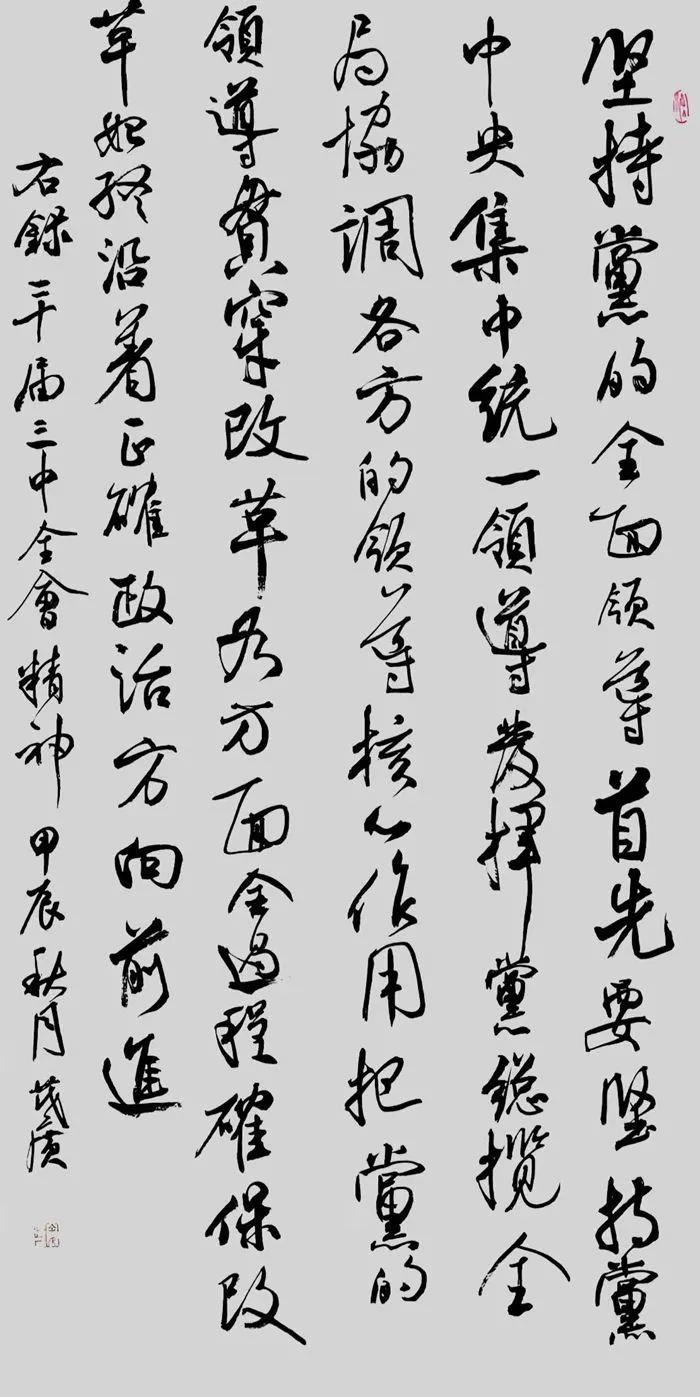 堅持黨的全面領導首先要堅持黨
中央集中統一領導發揮黨總攬全
局協調各方的領導核心作用把黨的
領導貫穿改革各方面全過程確保改
革始終沿着正確政治方向前進
右錄二十届三中全會精神 甲辰秋月 茂廣